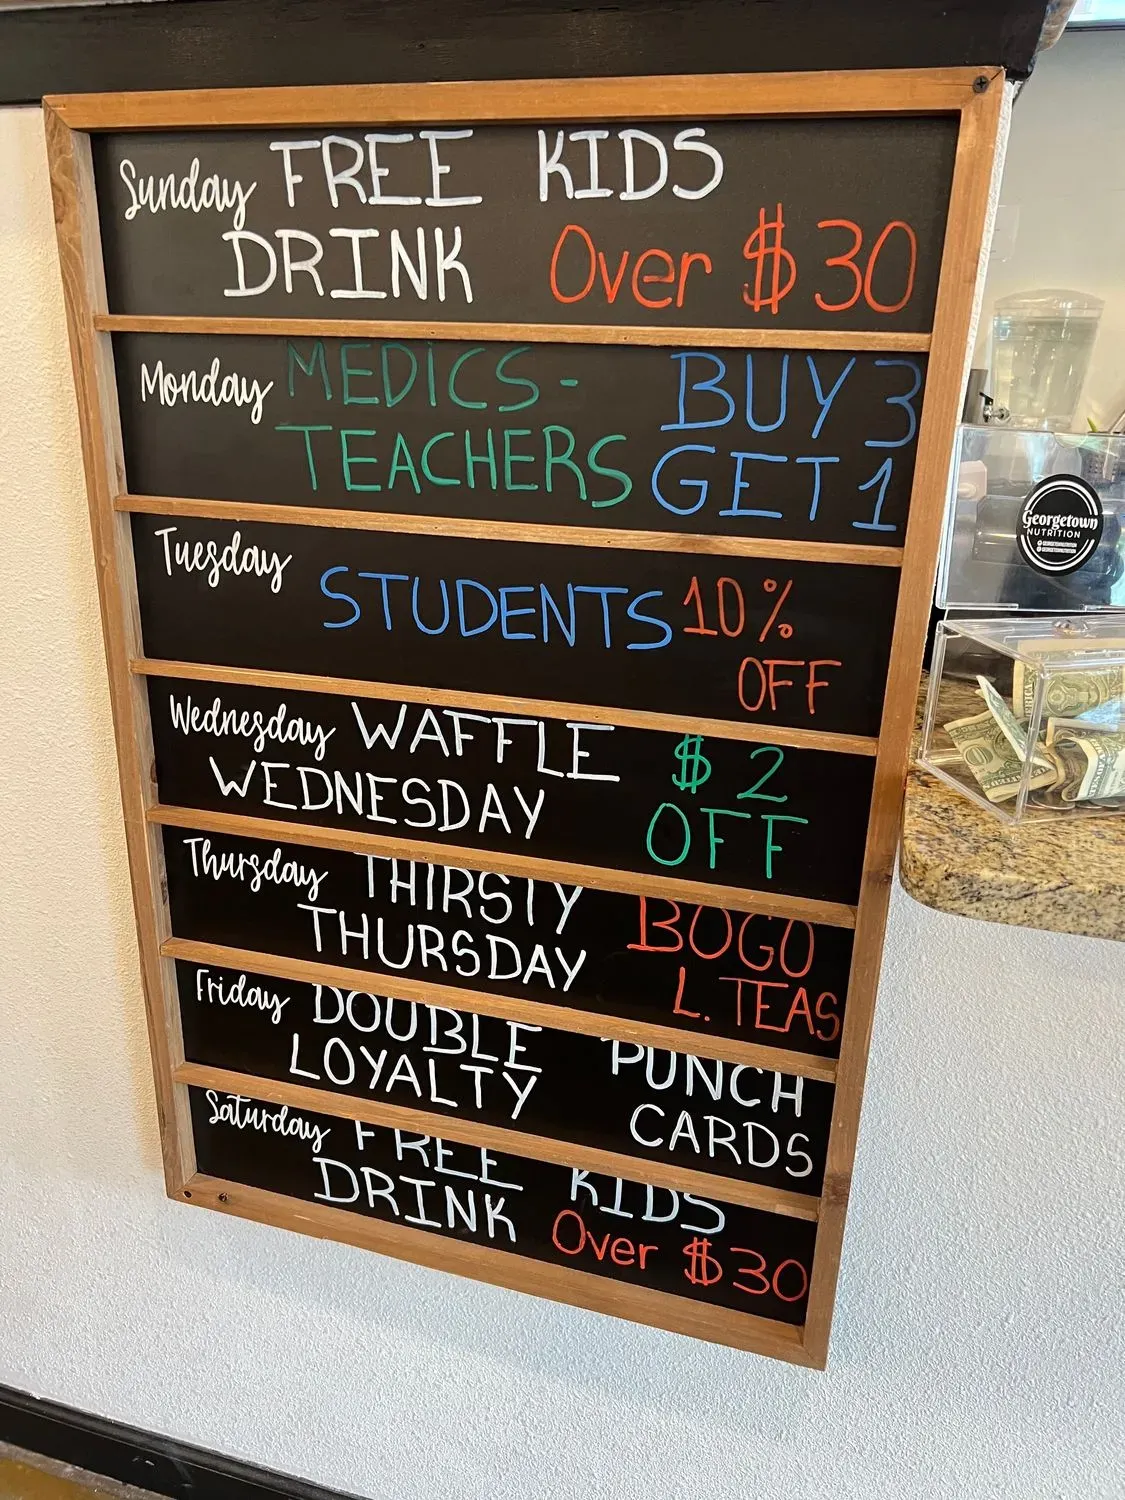 Sunday FREE KIDS
DRINK Over $30
Monday MEDICS- BUY 3
TEACHERS GET 1
Tuesday
STUDENTS 10%
OFF
Wednesday WAFFLE $2
WEDNESDAY OFF
Thursday THIRSTY BOGO
THURSDAY L. TEAS
Friday DOUBLE PUNCH
LOYALTY CARDS
Saturday FREE KIDS
DRINK Over $30
Georgetown
NUTRITION